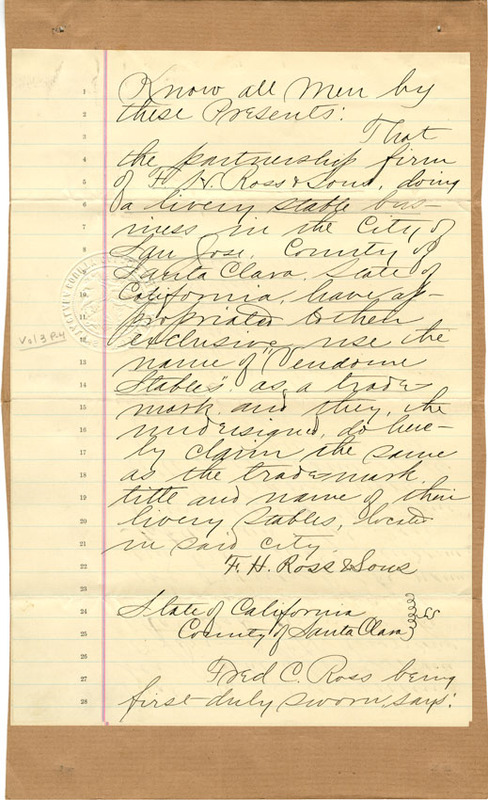 Know all Men by
these Presents:
That
the partnership firm
of F. H. Ross & Sons, doing
a livery stable bus-
iness in the City of
San Jose, County of
Santa Clara, State of
California, have ap-
propriated to their
exclusive use the
name of "Vendome
Stables" as a trade
mark and they, the
undersigned, do here-
by claim the same
as the trademark
title and name of their
livery stables, located
in said city.
F. H. Ross & Sons
State of California
County of Santa Clara } ss
Fred C. Ross being
first duly sworn, says:
Vol 3 P.4
1
2
3
4
5
6
7
8
10
11
12
13
14
15
16
17
18
19
20
21
22
23
24
25
26
27
28